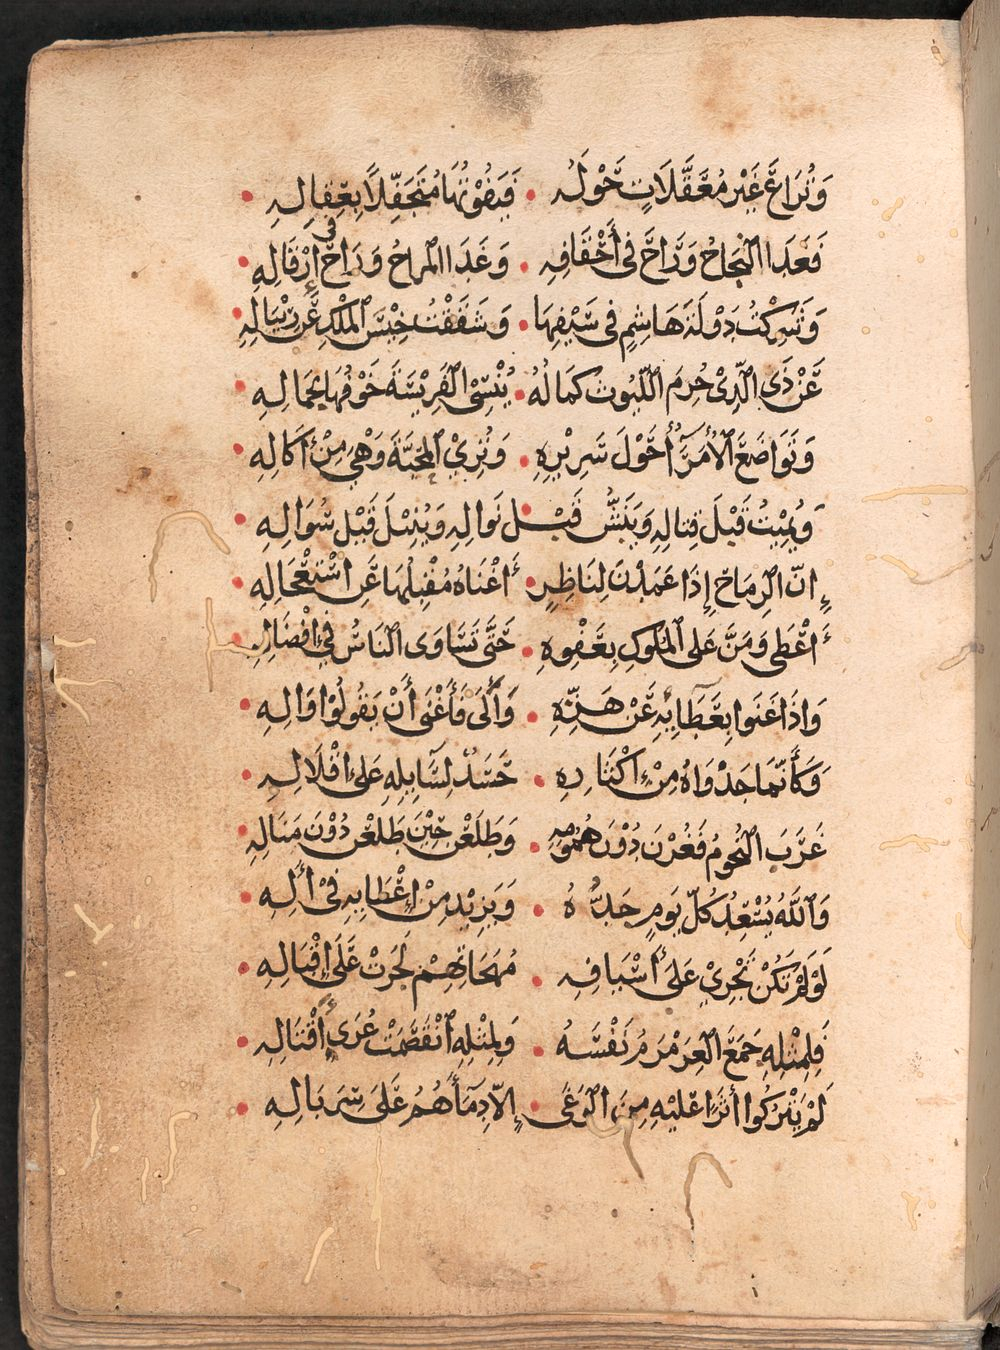 وَتُرَاعُ غَيْرَ مُعَقَّلَاتٍ حَوْلَهُ • فَيَفُوْتُهَا مُتَجَفِّلًا بِعِقَالِهِ •
فَغَدَا النَّجَاحُ وَرَاحَ فِي أَخْفَافِهِ • وَغَدَا الْمِرَاحُ وَرَاحَ فِي إِرْقَالِهِ •
وَشَرِكْتُ دَوْلَةَ هَاشِمٍ فِي سَيْفِهَا • وَشَقَقْتُ خِيْسَ الْمُلْكِ عَنْ رِئْبَالِهِ •
عَنْ ذَي الَّذِيْ حُرِمَ اللُّيُوثُ كَمَالَهُ • يُنْسِيْ الْفَرِيْسَةَ خَوْفُهَا بِجَمَالِهِ •
وَتَوَاضَعُ الْأُمَرَاءُ حَوْلَ سَرِيْرِهِ • وَتُرِيْ الْمَحَبَّةَ وَهْيَ مِنْ أَكَالِهِ •
وَيُمِيْتُ قَبْلَ قِتَالِهِ وَيَبَشُّ قَبْـلَ نَوَالِهِ وَيُنِيْلُ قَبْلَ سُؤَالِهِ •
إِنَّ الرِّمَاحَ إِذَا عَمَدْنَ لِنَاظِرٍ • أَغْنَاهُ مُقْبِلُهَا عَنِ اسْتِعْجَالِهِ •
أَعْطَى وَمَنَّ عَلَى الْمُلُوكِ بِعَفْوِهِ • حَتَّى تَسَاوَى النَّاسُ فِيْ إِفْضَالِهِ
وَاِذَا غَنَوا بِعَطَائِهِ عَنْ هَزِّهِ • وَالَى فَأَغْنَى أَنْ يَقُولُوْا وَالِهِ •
وَكَأَنَّمَا جَدْوَاهُ مِنْ إِكْثَارِهِ • حَسَدٌ لِسَائِلِهِ عَلَى إِقْلَالِهِ •
غَرَبَ النُّجُومُ فَغُرْنَ دُوْنَ هُمُوْمِهِ • وَطَلَعْنَ حِيْنَ طَلَعْنَ دُوْنَ مَنَالِهِ •
وَاللَّهُ يُسْعِدُ كُلَّ يَومٍ جَدَّهُ • وَيَزِيْدُ مِنْ أَعْدَائِهِ فِيْ آلِهِ •
لَوْ لَمْ تَكُنْ تَجْرِيْ عَلَى أَسْيَافِهِ • مُهَجَاتُهُمْ لَجَرَتْ عَلَى إِقْبَالِهِ •
فَلِمِثْلِهِ جَمَعَ الْعَرَمْرَمُ نَفْسَهُ • وَلِمِثْلِهِ انْقَصَمَتْ عُرَى أَقْتَالِهِ •
لَمْ يَتْرُكُوا أَثَرًا عَلَيْهِ مِنَ الْوَغَى • إِلَّا دِمَاءَهُمُ عَلَى سِرْبَالِهِ •